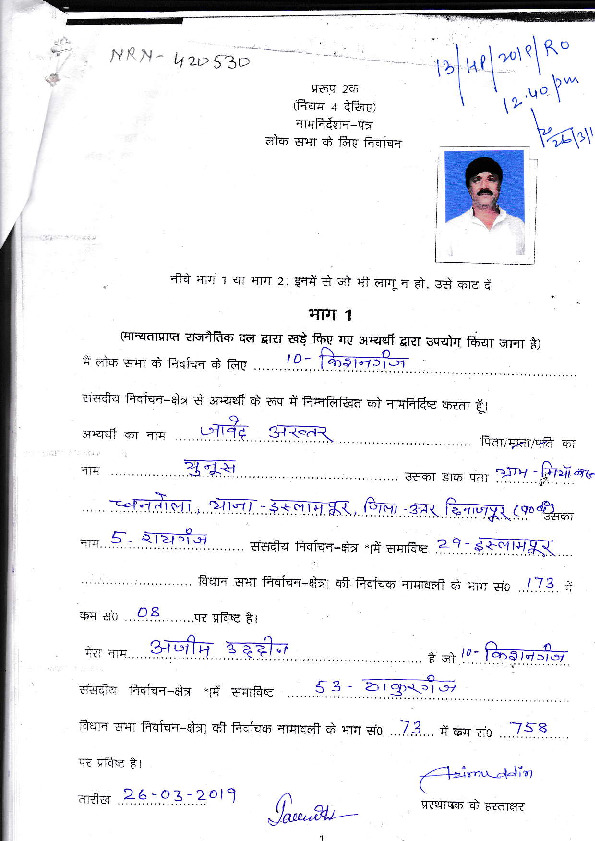 NRN- 420530
13/HP/2019/RO
12.40 pm
26/3/1
प्ररूप 2क
(नियम 4 देखिए)
नामनिर्देशन-पत्र
लोक सभा के लिए निर्वाचन
नीचे भाग 1 या भाग 2. इनमें से जो भी लागू न हो. उसे काट दें
भाग 1
(मान्यताप्राप्त राजनैतिक दल द्वारा खड़े किए गए अभ्यर्थी द्वारा उपयोग किया जाना है)
मैं लोक सभा के निर्वाचन के लिए 10- किशनगंज
संसदीय निर्वाचन-क्षेत्र से अभ्यर्थी के रूप में निम्नलिखित को नामनिर्दिष्ट करता हूँ।
अभ्यर्थी का नाम जावेद अख्तर पिता/माता/पति का
नाम युनूस उसका डाक पता ग्राम -
थाना -इस्लामपूर, जिला -उत्तर दिनाजपूर उसका
नाम 5- रायगंज संसदीय निर्वाचन-क्षेत्र *में समाविष्ट 29- इस्लामपूर
विधान सभा निर्वाचन-क्षेत्र) की निर्वाचक नामावली के भाग सं० 173 में
कम सं० 08 पर प्रविष्ट है।
मेरा नाम अजीम उद्दीन है जो 10- किशनगंज
संसदीय निर्वाचन-क्षेत्र *(में समाविष्ट 53- ठाकुरगंज
विधान सभा निर्वाचन-क्षेत्र) की निर्वाचक नामावली के भाग सं० 73 में कम सं० 758
पर प्रविष्ट है।
Azimuddin
तारीख 26-03-2019 प्रस्थापक के हस्ताक्षर
1